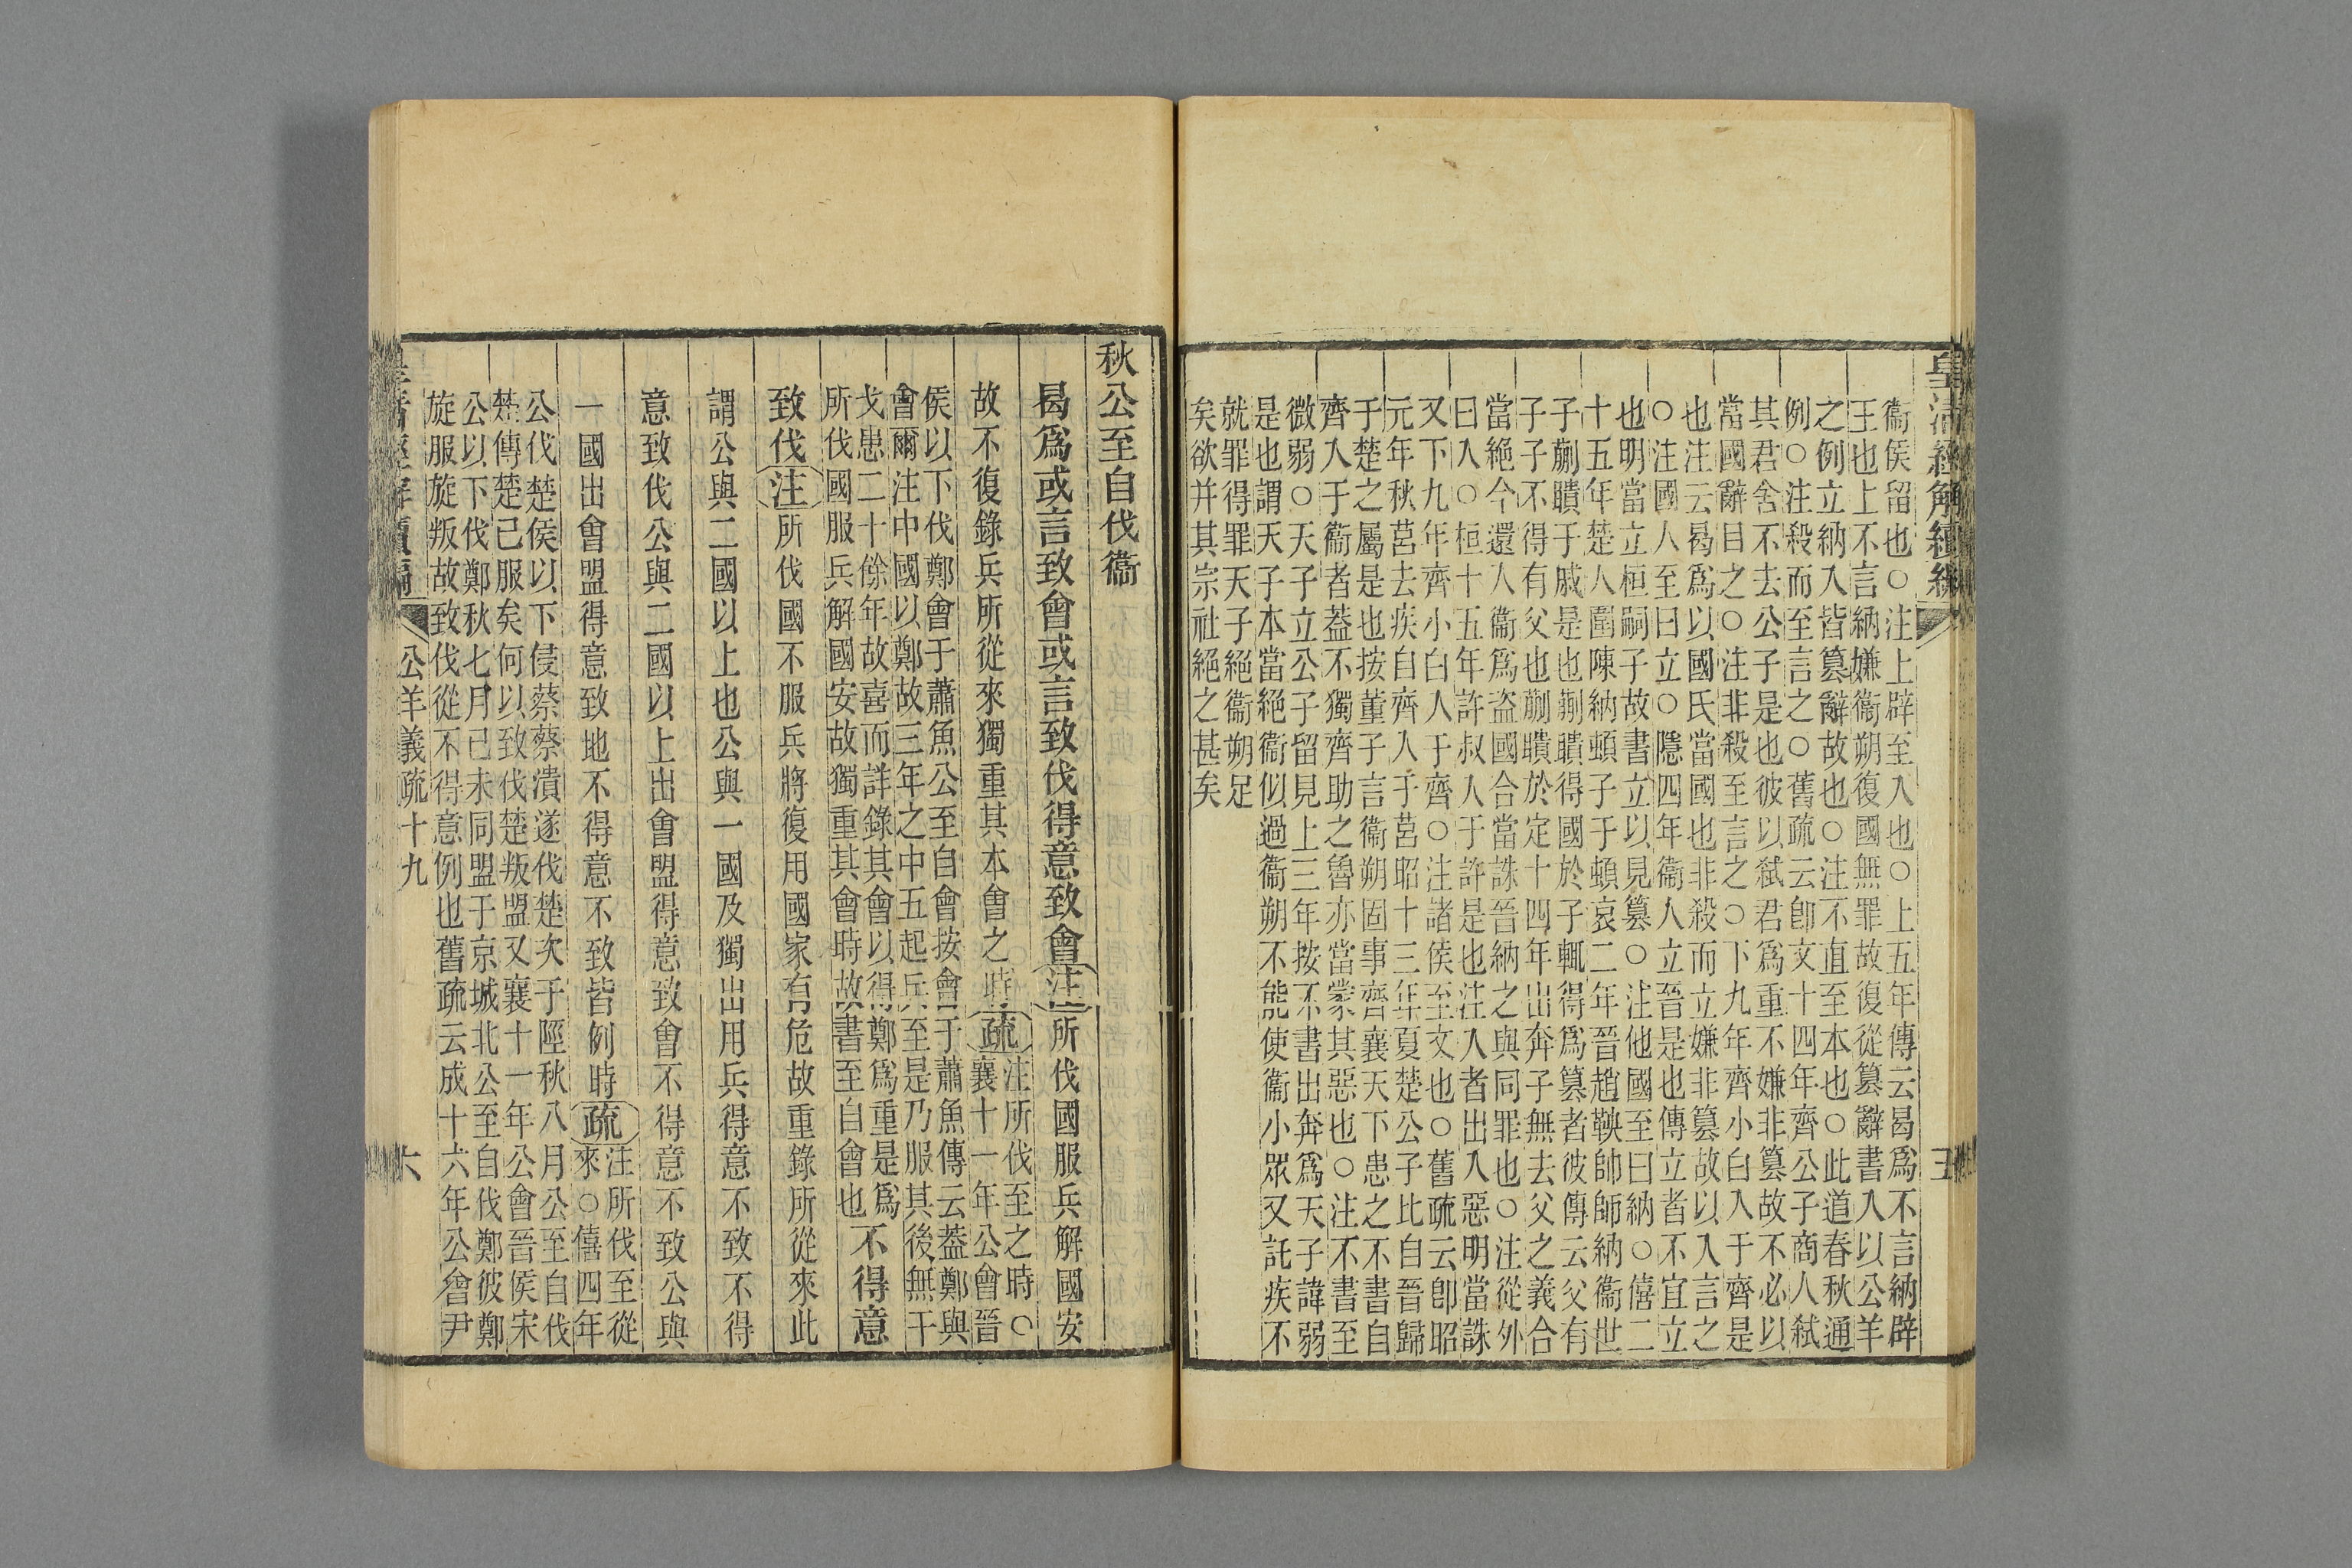 皇清經解續編
五
衞侯留也○注上辟至入也○上五年傳云曷爲不言納辟
王也上不言納嫌衞朔復國無罪故復從篡辭書入以公羊
之例立納入皆篡辭故也○注不直至本也○此道春秋通
例○注殺而至言之○舊疏云卽文十四年齊公子商人弒
其君舍不去公子是也彼以弒君爲重不嫌非篡故不必以
當國辭目之○注非殺至言之○下九年齊小白入于齊是
也注云曷爲以國氏當國也非殺而立嫌非篡故以入言之
○注國人至曰立○隱四年衞人立晉是也傳立者不宜立
也明當立桓嗣子故書立以見篡○注他國至曰納○僖二
十五年楚人圍陳納頓子于頓哀二年晉趙鞅帥師納衞世
子蒯聵于戚是也蒯聵得國於子輒得爲篡者彼傳云父有
子子不得有父也蒯聵於定十四年出奔子無去父之義合
當絕今還入衞爲盜國合當誅晉納之與同罪也○注從外
曰入○桓十五年許叔人于許是也注入者出入惡明當誅
又下九年齊小白入于齊○注諸侯至文也○舊疏云卽昭
元年秋莒去疾自齊入于莒昭十三年夏楚公子比自晉歸
于楚之屬是也按董子言衞朔固事齊襄天下患之不書自
齊人于衞者蓋不獨齊助之魯亦當蒙其惡也○注不書至
微弱○天子立公子留見上三年按不書出奔爲天子諱弱
是也謂天子本當絕衞似過衞朔不能使衞小眾又託疾不
就罪得罪天子絕衞朔足
矣欲并其宗社絕之甚矣
秋公至自伐衞
曷爲或言致會或言致伐得意致會注所伐國服兵解國安
故不復錄兵所從來獨重其本會之時疏注所伐至之時○
襄十一年公會晉
侯以下伐鄭會于蕭魚公至自會按會于蕭魚傳云蓋鄭與
會爾注中國以鄭故三年之中五起兵至是乃服其後無干
戈患二十餘年故喜而詳錄其會以得鄭爲重是爲
所伐國服兵解國安故獨重其會時故書至自會也不得意
致伐注所伐國不服兵將復用國家有危故重錄所從來此
謂公與二國以上也公與一國及獨出用兵得意不致不得
意致伐公與二國以上出會盟得意致會不得意不致公與
一國出會盟得意致地不得意不致皆例時疏注所伐至從
來○僖四年
公伐楚侯以下侵蔡蔡潰遂伐楚次于陘秋八月公至自伐
楚傳楚已服矣何以致伐楚叛盟又襄十一年公會晉侯宋
公以下伐鄭秋七月己未同盟于京城北公至自伐鄭彼鄭
旋服旋叛故致伐從不得意例也舊疏云成十六年公會尹
公羊義疏十九
六